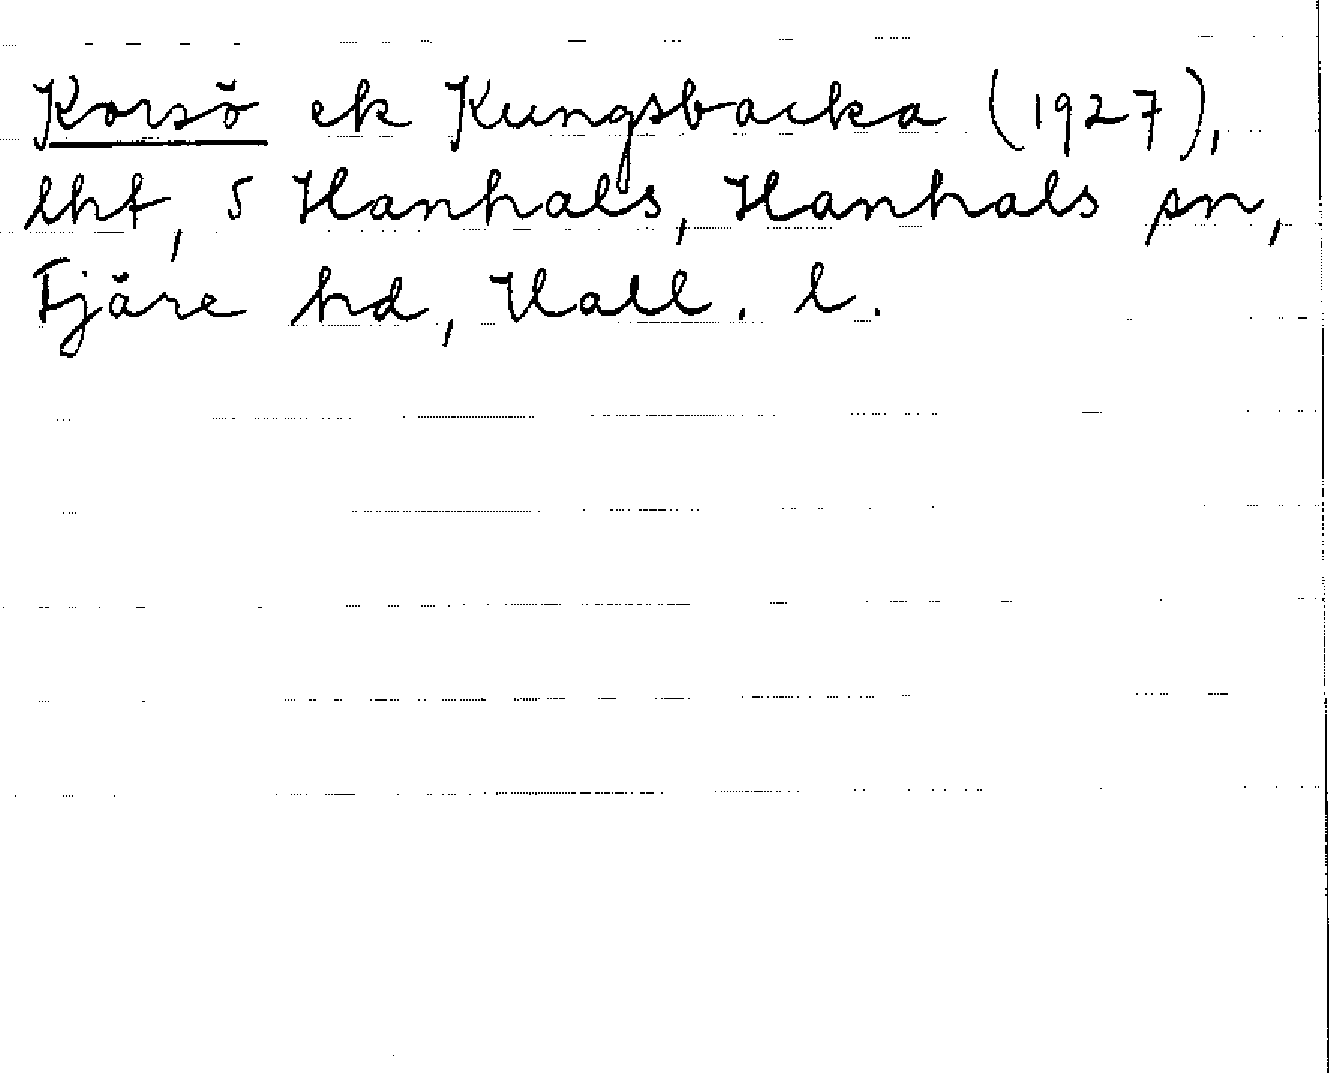 Korsö ek Kungsbacka (1927),
lht, S Hanhals, Hanhals sn,
Fjäre hd, Hall. l.